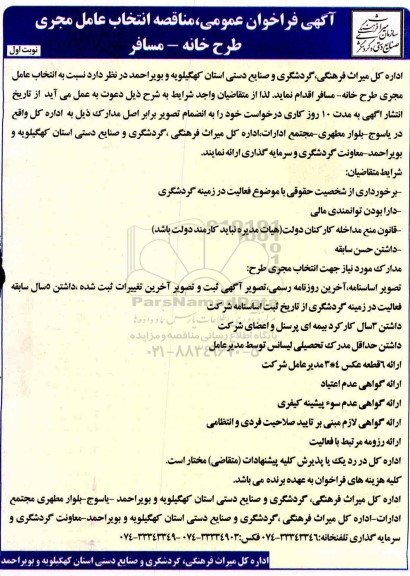 آگهی فراخوان عمومی،مناقصه انتخاب عامل مجری
طرح خانه – مسافر
نوبت اول
اداره کل میراث فرهنگی،گردشگری و صنایع دستی استان کهگیلویه و بویراحمد در نظر دارد نسبت به انتخاب عامل
مجری طرح خانه- مسافر اقدام نماید. لذا از متقاضیان واجد شرایط به شرح ذیل دعوت به عمل می آید از تاریخ
انتشار آگهی به مدت ۱۰ روز کاری درخواست خود را به انضمام تصویر برابر اصل مدارک ذیل به اداره کل واقع
در یاسوج-بلوار مطهری-مجتمع ادارات،اداره کل میراث فرهنگی ،گردشگری و صنایع دستی استان کهگیلویه و
بویراحمد-معاونت گردشگری و سرمایه گذاری ارائه نمایند.
شرایط متقاضیان:
-برخورداری از شخصیت حقوقی با موضوع فعالیت در زمینه گردشگری
-دارا بودن توانمندی مالی
-قانون منع مداخله کارکنان دولت(هیات مدیره نباید کارمند دولت باشد)
-داشتن حسن سابقه
مدارک مورد نیاز جهت انتخاب مجری طرح:
تصویر اساسنامه،آخرین روزنامه رسمی،تصویر آگهی ثبت و تصویر آخرین تغییرات ثبت شده ،داشتن ۵سال سابقه
فعالیت در زمینه گردشگری از تاریخ ثبت اساسنامه شرکت
داشتن ۳سال کارکرد بیمه ای پرسنل و اعضای شرکت
داشتن حداقل مدرک تحصیلی لیسانس توسط مدیرعامل
ارائه ۶قطعه عکس ۴*۳ مدیرعامل شرکت
ارائه گواهی عدم اعتیاد
ارائه گواهی عدم سوء پیشینه کیفری
ارائه گواهی لازم مبنی بر تایید صلاحیت فردی و انتظامی
ارائه رزومه مرتبط با فعالیت
اداره کل در رد یک یا پذیرش کلیه پیشنهادات (متقاضی) مختار است.
کلیه هزینه های فراخوان به عهده برنده می باشد.
اداره کل میراث فرهنگی، گردشگری و صنایع دستی استان کهگیلویه و بویراحمد –یاسوج-بلوار مطهری مجتمع
ادارات-اداره کل میراث فرهنگی ،گردشگری و صنایع دستی استان کهگیلویه و بویراحمد-معاونت گردشگری و
سرمایه گذاری تلفنخانه:۳۳۳۴۳۳۴۶-۰۷۴ فکس:۳۳۳۴۹۰۳-۰۷۴ -۳۳۳۴۳۳۴۹-۰۷۴
اداره کل میراث فرهنگی، گردشگری و صنایع دستی استان کهگیلویه و بویراحمد
ParsNamadData
۰۲۱-۸۸۳۴۹۶۷۰-۵